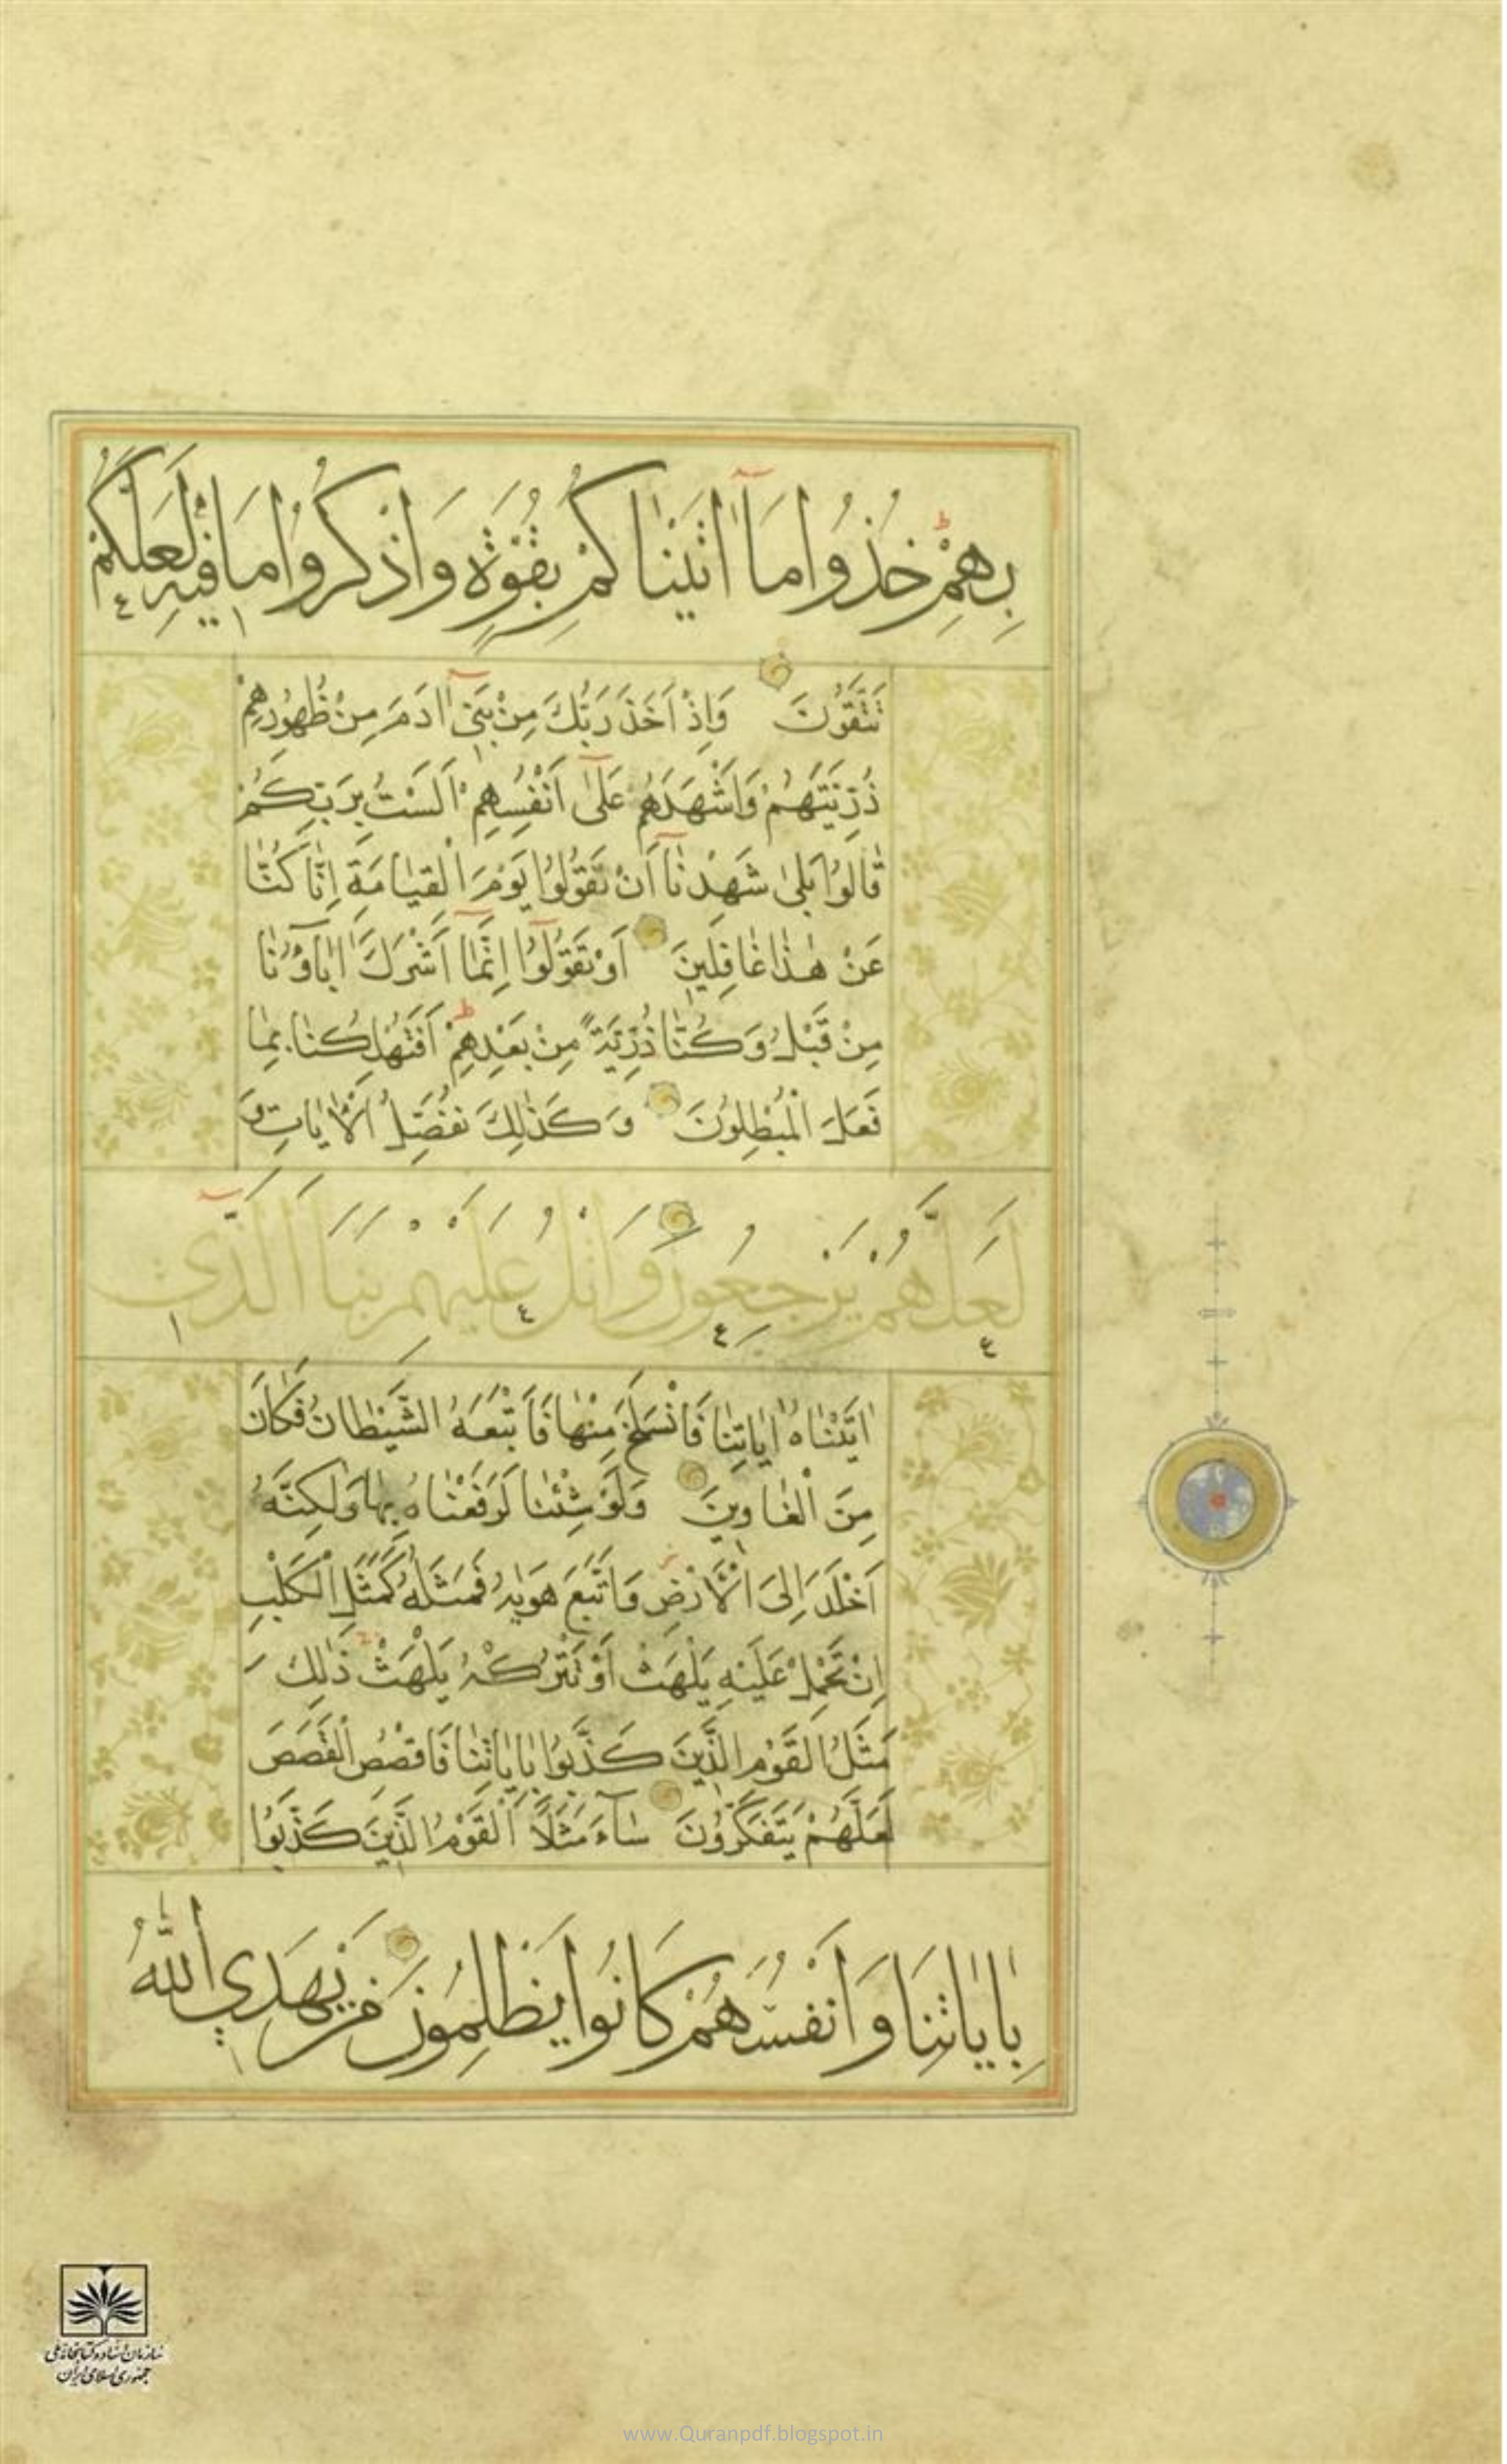 بِهِمْ خُذُوا مَآ اٰتَيْنٰاكُمْ بِقُوَّةٍ وَاذْكُرُوا مَا فيهِ لَعَلَّكُمْ
تَتَّقُونَ وَاِذْ اَخَذَ رَبُّكَ مِنْ بَنىٓ اٰدَمَ مِنْ ظُهُورِهِمْ
ذُرِّيَّتَهُمْ وَاَشْهَدَهُمْ عَلىٰٓ اَنْفُسِهِمْ اَلَسْتُ بِرَبِّكُمْ
قٰالُوا بَلىٰ شَهِدْنٰآ اَنْ تَقُولُوا يَوْمَ الْقِيٰامَةِ اِنّٰا كُنّٰا
عَنْ هٰذٰا غٰافِلينَ اَوْ تَقُولُوٓا اِنَّمٰٓا اَشْرَكَ اٰبٰآؤُنٰا
مِنْ قَبْلُ وَكُنّٰا ذُرِّيَّةً مِنْ بَعْدِهِمْ اَفَتُهْلِكُنٰا بِمٰا
فَعَلَ الْمُبْطِلُونَ وَكَذٰلِكَ نُفَصِّلُ الْاٰيٰاتِ وَ
لَعَلَّهُمْ يَرْجِعُونَ وَاتْلُ عَلَيْهِمْ نَبَاَ الَّذىٓ
اٰتَيْنٰاهُ اٰيٰاتِنٰا فَانْسَلَخَ مِنْهٰا فَاَتْبَعَهُ الشَّيْطٰانُ فَكٰانَ
مِنَ الْغٰاوينَ وَلَوْ شِئْنٰا لَرَفَعْنٰاهُ بِهٰا وَلٰكِنَّهُ
اَخْلَدَ اِلَى الْاَرْضِ وَاتَّبَعَ هَوٰيهُ فَمَثَلُهُ كَمَثَلِ الْكَلْبِ
اِنْ تَحْمِلْ عَلَيْهِ يَلْهَثْ اَوْ تَتْرُكْهُ يَلْهَثْ ذٰلِكَ
مَثَلُ الْقَوْمِ الَّذينَ كَذَّبُوا بِاٰيٰاتِنٰا فَاقْصُصِ الْقَصَصَ
لَعَلَّهُمْ يَتَفَكَّرُونَ سٰآءَ مَثَلًا الْقَوْمُ الَّذينَ كَذَّبُوا
بِاٰيٰاتِنَا وَاَنْفُسَهُمْ كَانُوا يَظْلِمُونَ مَنْ يَهْدِي اللّٰهُ
سازمان اسناد و کتابخانه ملی
جمهوری اسلامی ایران
www.Quranpdf.blogspot.in